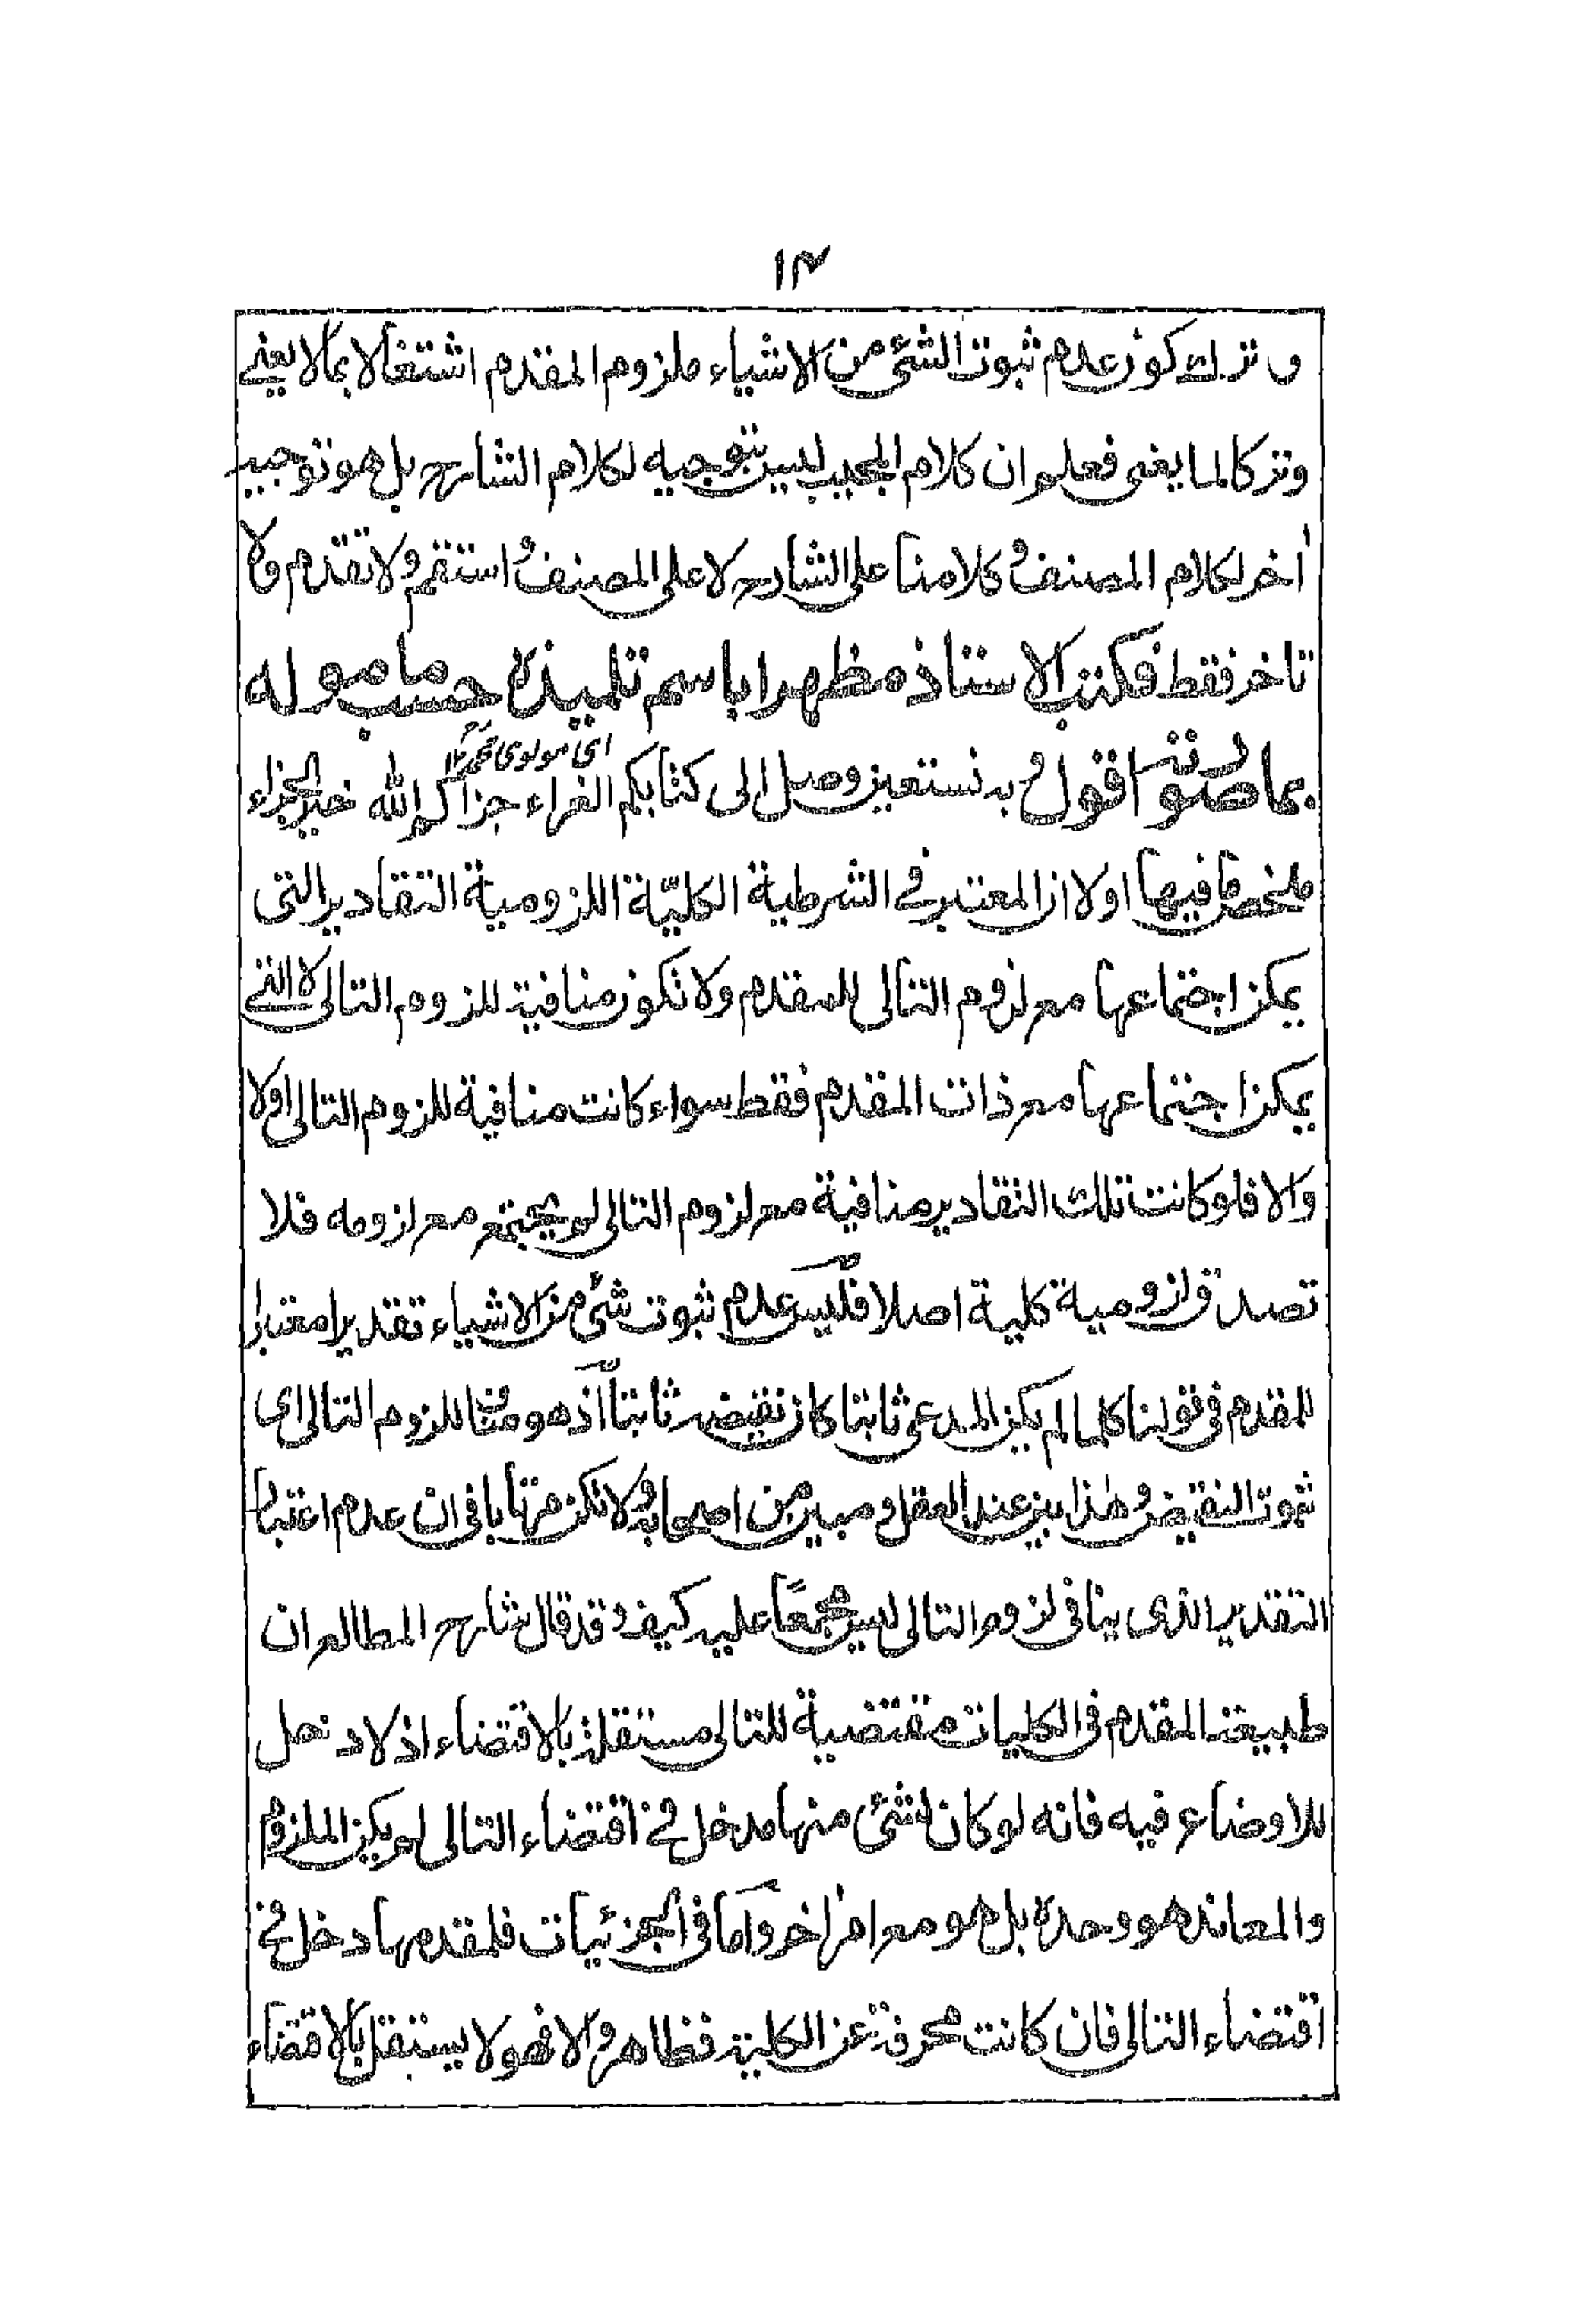 ١٣
وترك كون عدم ثبوت الشئ من الاشياء ملزوم المقدم اشتغالا بمالا يعني
وتركا لما يغني فعلم ان كلام المجيب ليس بتوجيه لكلام الشارح بل هو توجيه
اخر لكلام المصنف وكلامنا على الشارح لا على المصنف استقم ولا تقدم ولا
تاخر فقط فكتب الاستاذ مظهرا باسم تلميذه حسب ما موله
بما صورته اقول وبه نستعين وصل الى كتابكم الغراء جزاكم الله خير الجزاء
اى مولوى محمد ١٢
ملخص ما فيها اولا ان المعتبر في الشرطية الكليّة اللزومية التقادير التى
يمكن اجتماعها مع لزوم التالى للمقدم ولا تكون منافية للزوم التالى لا التي
يمكن اجتماعها مع ذات المقدم فقط سواء كانت منافية للزوم التالى اولا
والا فلو كانت تلك التقادير منافية مع لزوم التالى لم يجتمع مع لزومه فلا
تصدق لزومية كلية اصلا فليس عدم ثبوت شئ من الاشياء تقديرا معتبرا
للمقدم في قولنا كلما لم يكن المدعى ثابتا كان نقيضه ثابتا اذ هو مناف للزوم التالى اى
ثبوت النقيض وهذا بين عند العقل ومبين من اصحابه ولا تكن مرتابا في ان عدم اعتبار
التقدير الذى ينافى لزوم التالى ليس مجمعًا عليه كيف وقد قال شارح المطالع ان
طبيعة المقدم في الكليات مقتضية للتالى مستقلة بالاقتضاء اذ لا دخل
للاوضاع فيه فانه لو كان لشئ منها مدخل في اقتضاء التالى لم يكن الملزوم
والمعاند هو وحده بل هو مع امر اخر واما في الجزئيات فللمقدم بها دخل في
اقتضاء التالى فان كانت محرفة عن الكلية فظاهر والا فهو لا يستقل بالاقتضاء